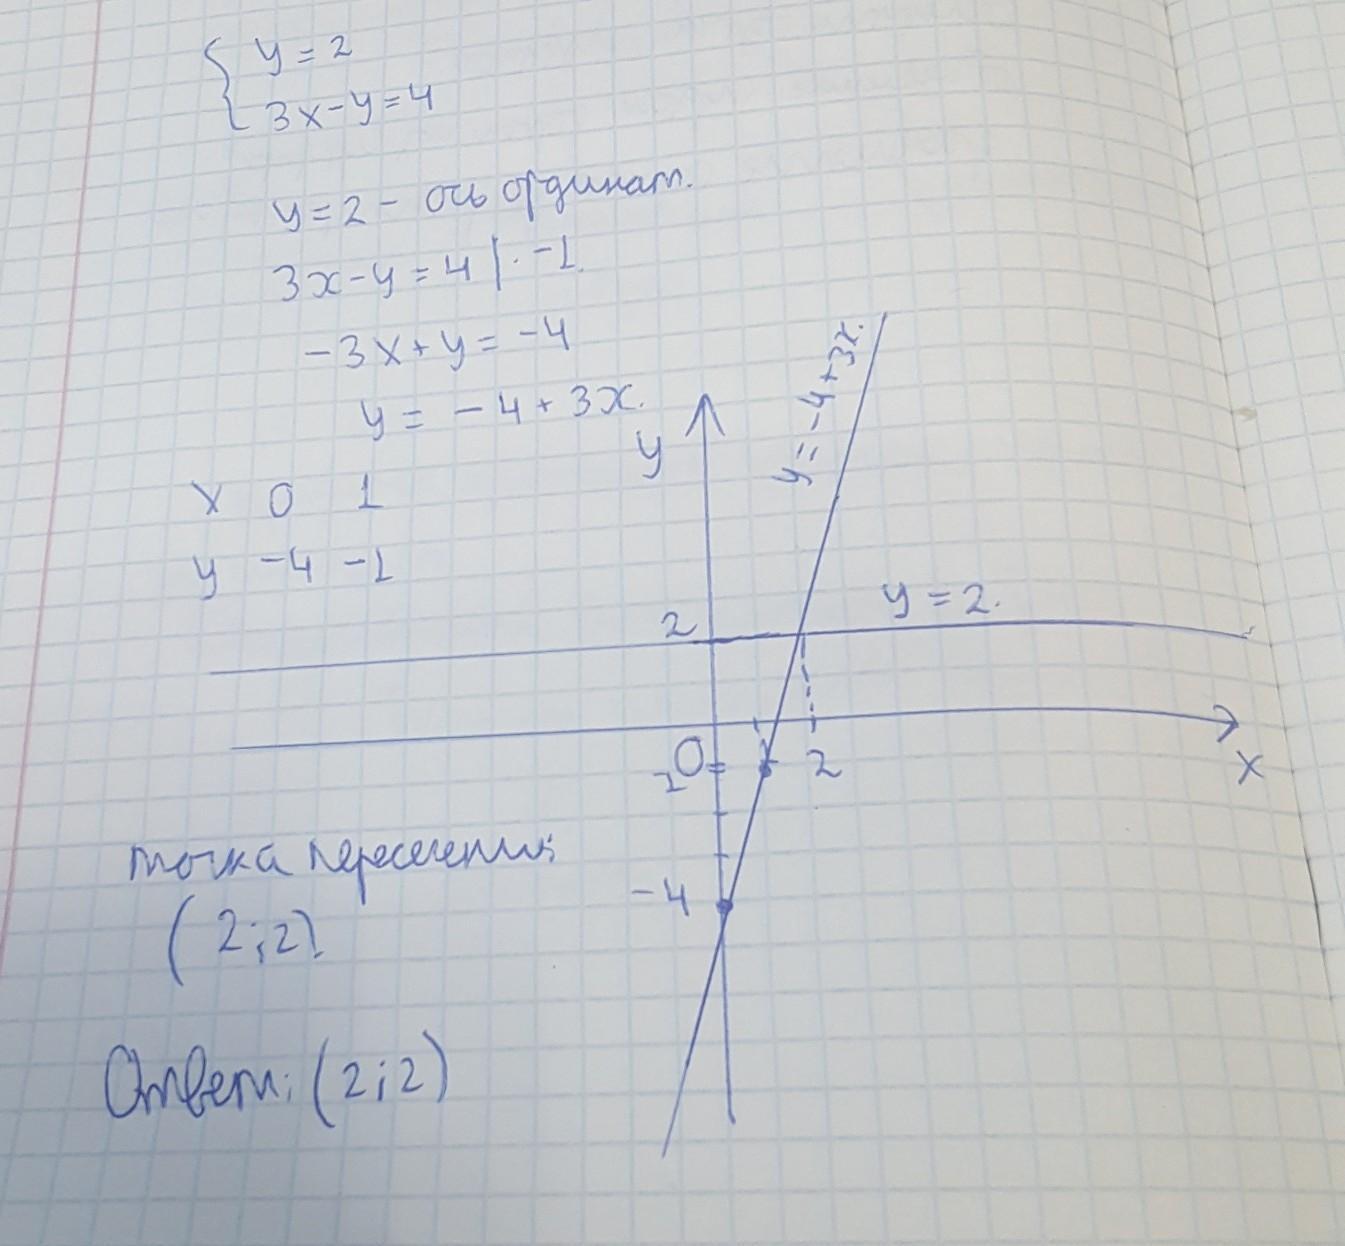 { y = 2
3x - y = 4
y = 2 - ось ординат.
3x - y = 4 | · -1
-3x + y = -4
y = -4 + 3x.
x 0 1
y -4 -1
y
y = -4 + 3x.
2
y = 2.
0
1
2
x
-4
точка пересечения:
(2;2)
Ответ: (2;2)